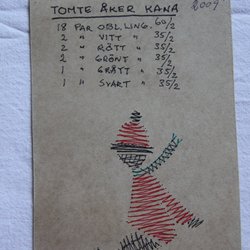 TOMTE ÅKER KANA 2009
18 PAR OBL. LING. 60/2
2 " VITT " 35/2
2 " RÖTT " 35/2
2 " GRÖNT " 35/2
1 " GRÅTT " 35/2
1 " SVART " 35/2